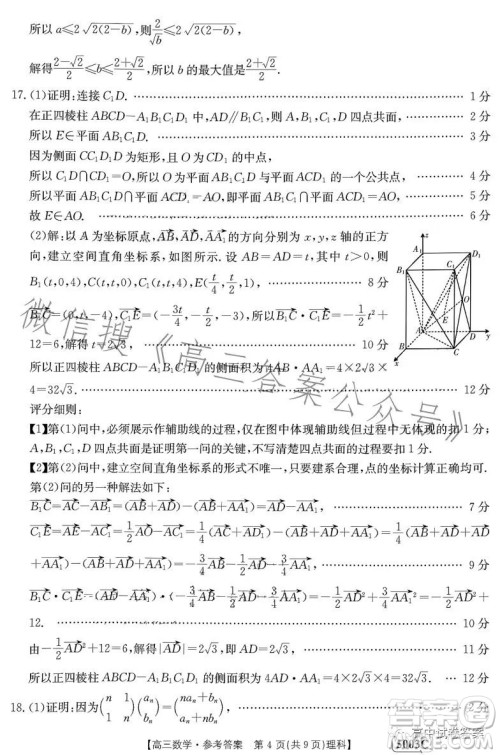 所以 a≤2√(2(2−b)),则 2/√b ≤2√(2(2−b)),
解得 (2−√2)/2≤b≤(2+√2)/2,所以 b 的最大值是 (2+√2)/2.
17.(1)证明:连接 C₁D. …… 1 分
在正四棱柱 ABCD−A₁B₁C₁D₁ 中,AD∥B₁C₁,则 A,B₁,C₁,D 四点共面, …… 2 分
所以 E∈平面 AB₁C₁D. …… 3 分
因为侧面 CC₁D₁D 为矩形,且 O 为 CD₁ 的中点,
所以 C₁D∩CD₁=O,所以 O 为平面 AB₁C₁D 与平面 ACD₁ 的一个公共点, …… 4 分
所以平面 AB₁C₁D∩平面 ACD₁=AO,即平面 AB₁C₁D∩平面 ACD₁=AO, …… 5 分
故 E∈AO. …… 6 分
(2)解:以 A 为坐标原点,AB,AD,AA₁ 的方向分别为 x,y,z 轴的正方
向,建立空间直角坐标系,如图所示.设 AB=AD=t,其中 t>0,则
B₁(t,0,4),C(t,t,0),C₁(t,t,4),E(t/4,t/2,1), …… 8 分
B₁C=(0,t,−4),C₁E=(−3t/4,−t/2,−3),所以 B₁C·C₁E=−1/2t²+
12=6,解得 t=2√3, …… 10 分
所以正四棱柱 ABCD−A₁B₁C₁D₁ 的侧面积为 4AB·AA₁=4×2√3×
4=32√3. …… 12 分
评分细则:
【1】第(1)问中,必须展示作辅助线的过程,仅在图中体现辅助线但过程中无体现的扣 1 分;
A,B₁,C₁,D 四点共面是证明第一问的关键,不写清楚是哪四点共面要扣 1 分.
【2】第(2)问中,建立空间直角坐标系的形式不唯一,只要建系合理,点的坐标计算正确均可.
第(2)问的另一种解法如下:
B₁C=AC−AB₁=(AB+AD)−(AB+AA₁)=AD−AA₁, …… 7 分
C₁E=AE−AC₁=1/2AO−AC₁=1/4(AC+AD₁)−(AB+AD+AA₁)=1/4(AB+AD+AD
+AA₁)−(AB+AD+AA₁)=−3/4AB−1/2AD−3/4AA₁, …… 9 分
B₁C·C₁E=(AD−AA₁)·(−3/4AB−1/2AD−3/4AA₁)=−1/2AD²+3/4AA₁²=−1/2AD²+
12. …… 10 分
由−1/2AD²+12=6,解得|AD|=2√3,即 AD=2√3,
所以正四棱柱 ABCD−A₁B₁C₁D₁ 的侧面积为 4AD·AA₁=4×2√3×4=32√3. … 12 分
18.(1)证明:因为(n 1; 1 n)(aₙ; bₙ)=(naₙ+bₙ; aₙ+nbₙ), …… 2 分
【高三数学·参考答案 第 4 页(共 9 页)理科】
微信搜《高三答案公众号》